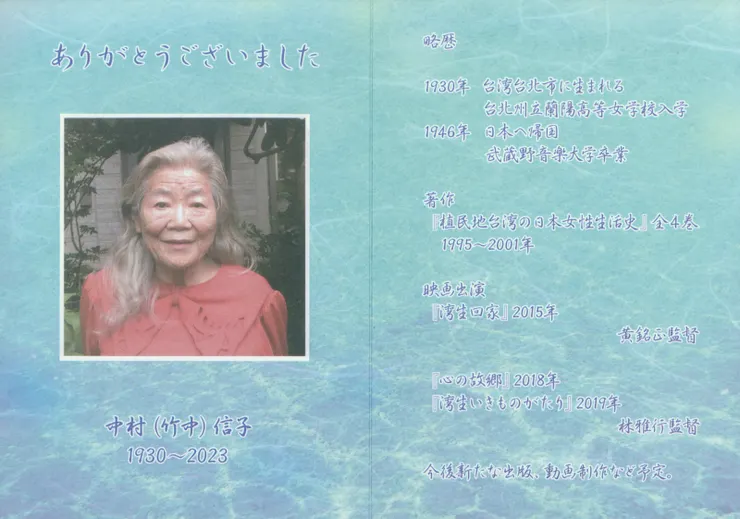 ありがとうございました
中村(竹中)信子
1930〜2023
略歴
1930年 台湾台北市に生まれる
台北州立蘭陽高等女学校入学
1946年 日本へ帰国
武蔵野音楽大学卒業
著作
『植民地台湾の日本女性生活史』全4巻
1995〜2001年
映画出演
『湾生回家』2015年
黄銘正監督
『心の故郷』2018年
『湾生いきものがたり』2019年
林雅行監督
今後新たな出版、動画制作など予定。